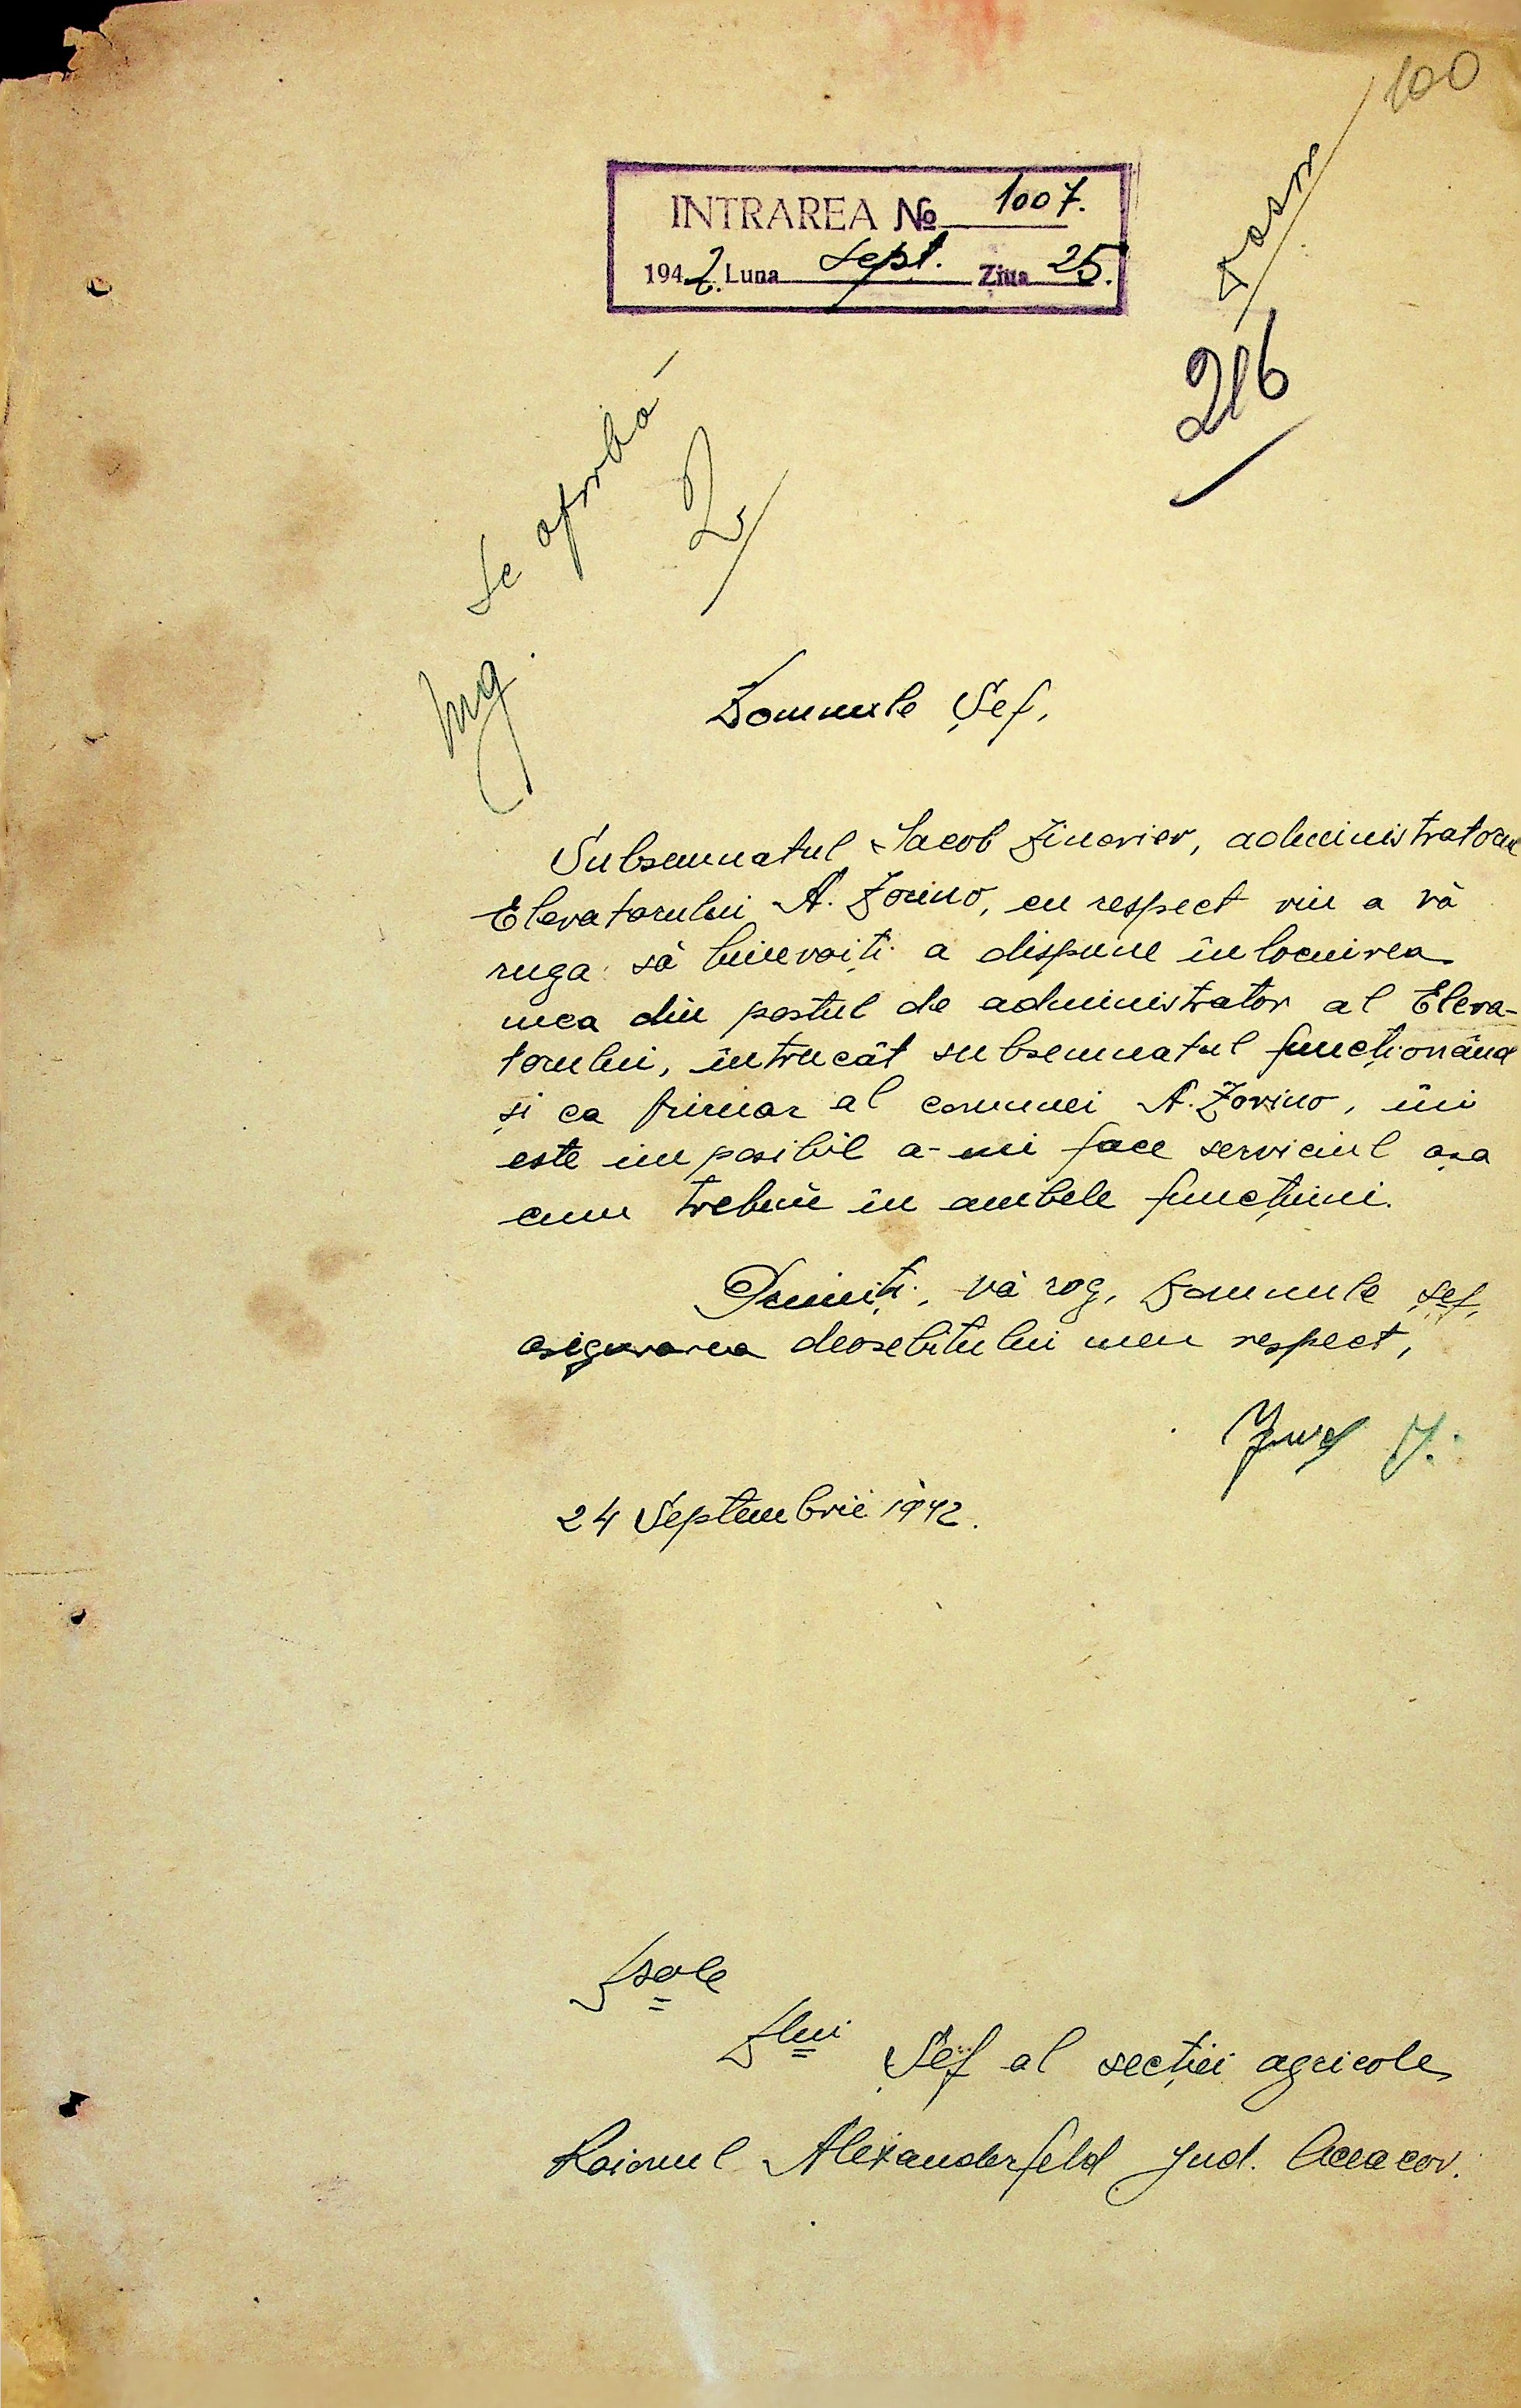 100
Dosar
216
INTRAREA № 1007.
1942. Luna Sept. Ziua 25.
Se aprobă
Ing.
Domnule Șef,
Subsemnatul Iacob Zinoviev, administratorul
Elevatorului A. Zorino, cu respect viu a vă
ruga să binevoiți a dispune înlocuirea
mea din postul de administrator al Eleva-
torului, întrucât subsemnatul funcționând
și ca primar al comunei A. Zorino, îmi
este imposibil a-mi face serviciul așa
cum trebuie în ambele funcțiuni.
Primiți, vă rog, Domnule Șef,
asigurarea deosebitului meu respect,
24 Septembrie 1942.
Dsale
Dlui Șef al secției agricole
Raionul Alexanderfeld Jud. Oceacov.